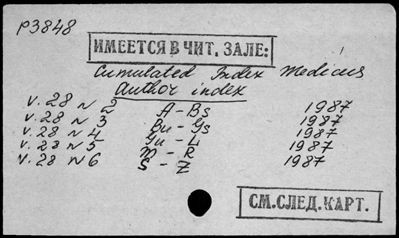 P3848
ИМЕЕТСЯ В ЧИТ. ЗАЛЕ:
Cumulated Index Medicus
Author index
v. 28 N 2 A - Bs 1987
v. 28 N 3 Bu - Gs 1987
v. 28 N 4 Gu - L 1987
v. 28 N 5 M - R 1987
v. 28 N 6 S - Z 1987
СМ. СЛЕД. КАРТ.